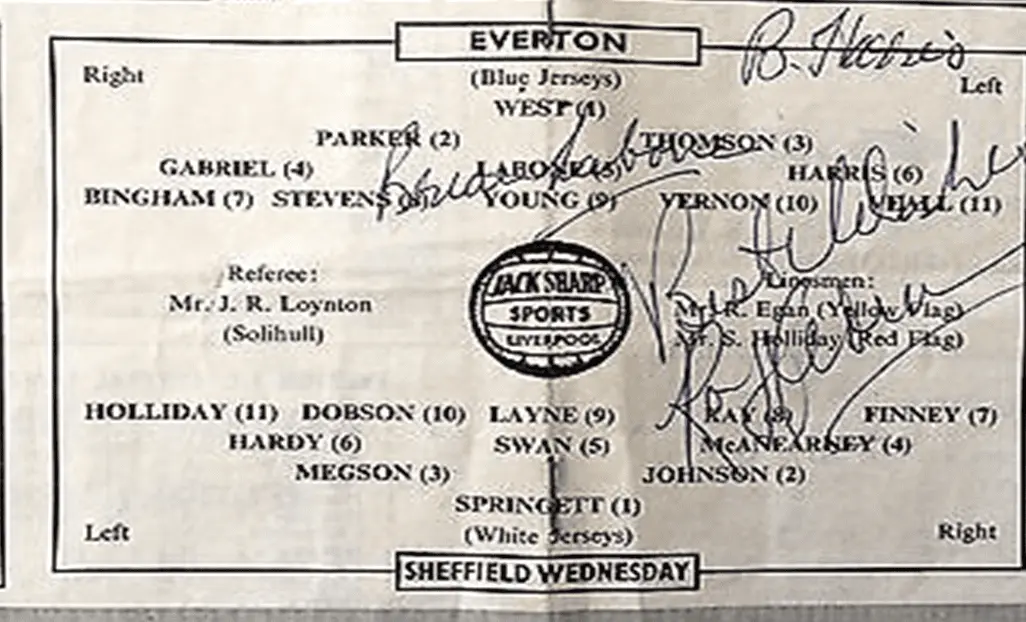 EVERTON
B. Harris
Right
(Blue Jerseys)
Left
WEST (1)
PARKER (2) THOMSON (3)
GABRIEL (4) LABONE (5) HARRIS (6)
BINGHAM (7) STEVENS (8) YOUNG (9) VERNON (10) VEALL (11)
Brian Labone
Referee:
Mr. J. R. Loynton
(Solihull)
JACK SHARP
SPORTS
LIVERPOOL
Linesmen:
Mr. R. Egan (Yellow Flag)
Mr. S. Holliday (Red Flag)
HOLLIDAY (11) DOBSON (10) LAYNE (9) KAY (8) FINNEY (7)
HARDY (6) SWAN (5) McANEARNEY (4)
MEGSON (3) JOHNSON (2)
SPRINGETT (1)
Left
(White Jerseys)
Right
SHEFFIELD WEDNESDAY